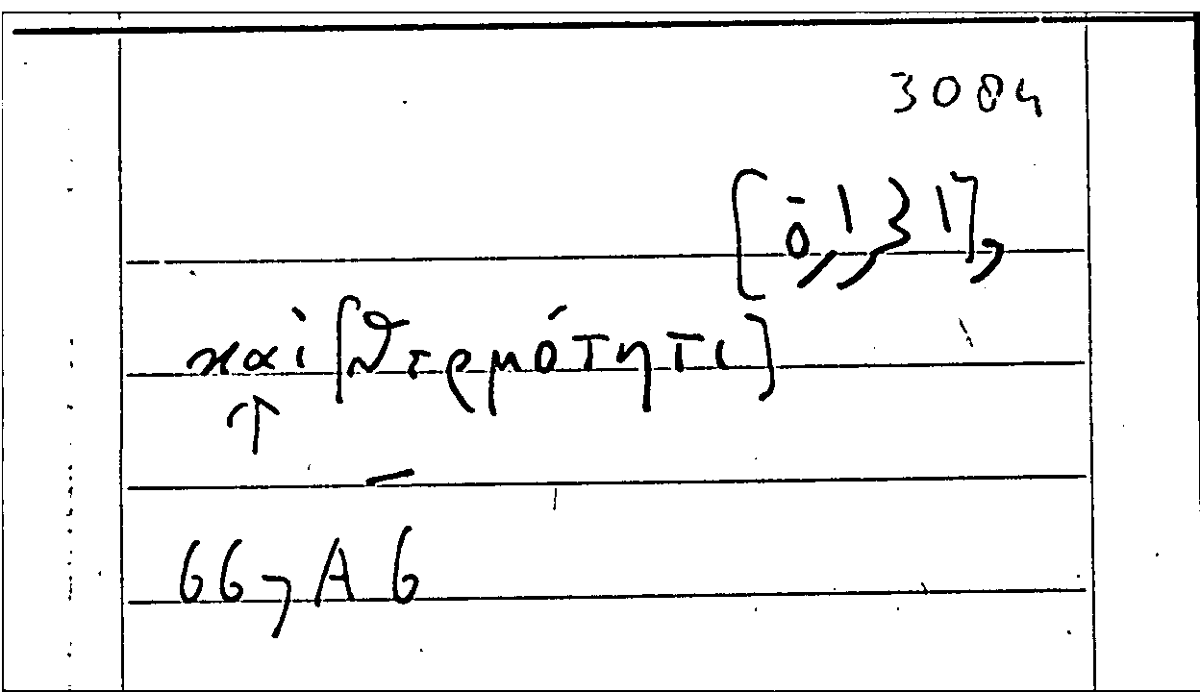 3084
[ō,1,31],
καὶ [θερμότητι]
↑
—
66,A6